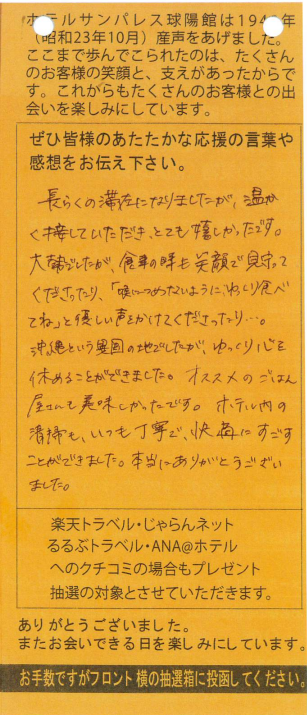 ホテルサンパレス球陽館は194 年
(昭和23年10月)産声をあげました。
ここまで歩んでこられたのは、たくさん
のお客様の笑顔と、支えがあったからで
す。これからもたくさんのお客様との出
会いを楽しみにしています。
ぜひ皆様のあたたかな応援の言葉や
感想をお伝え下さい。
長らくの滞在になりましたが、温か
く接していただき、とても嬉しかったです。
でしたが、食事の時も笑顔で見守って
くださったり、「喉につめないように、ゆっくり食べ
てね」と優しい声をかけてくださったり…。
沖縄という異国の地でしたが、ゆっくり心を
休めることができました。オススメのごはん
屋さんて美味しかったです。ホテル内の
清掃も、いつも丁寧で、快適にすごす
ことができました。本当にありがとうござい
ました。
楽天トラベル・じゃらんネット
るるぶトラベル・ANA@ホテル
へのクチコミの場合もプレゼント
抽選の対象とさせていただきます。
ありがとうございました。
またお会いできる日を楽しみにしています。
お手数ですがフロント横の抽選箱に投函してください。